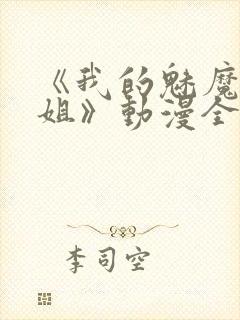 《我的魅魔
姐》動漫全
李司空